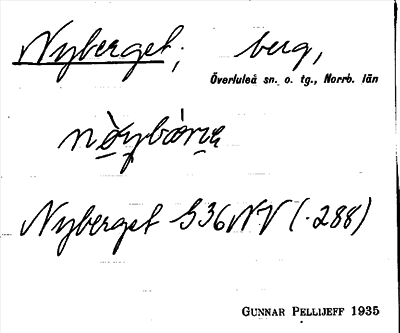 Nyberget; berg,
Överluleå sn. o. tg., Norrb. län
Nyberget S36NV (.288)
GUNNAR PELLIJEFF 1935